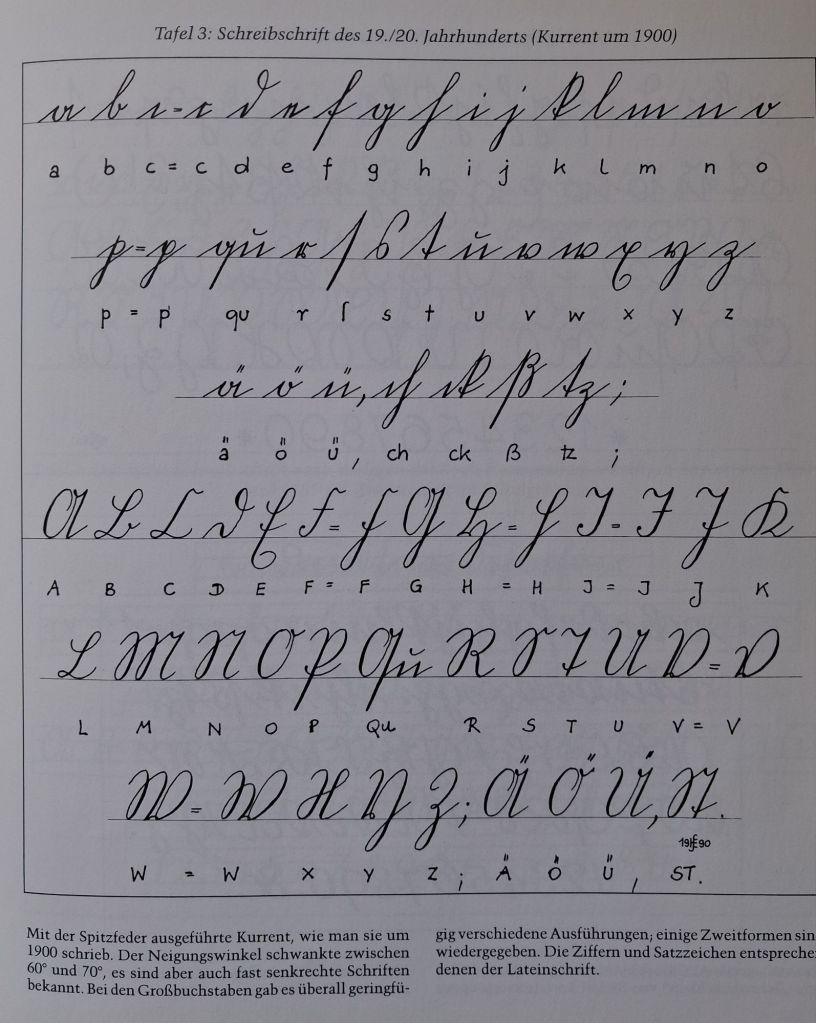 Tafel 3: Schreibschrift des 19./20. Jahrhunderts (Kurrent um 1900)
a b c = c d e f g h i j k l m n o
a b c = c d e f g h i j k l m n o
p = p qu r ſ s t u v w x y z
p = p qu r ſ s t u v w x y z
ä ö ü, ch ck ß tz ;
ä ö ü, ch ck ß tz ;
A B C D E F = F G H = H J = J J K
A B C D E F = F G H = H J = J J K
L M N O P Qu R S T U V = V
L M N O P Qu R S T U V = V
W = W X Y Z ; Ä Ö Ü, ST.
W = W X Y Z ; Ä Ö Ü, ST.
Mit der Spitzfeder ausgeführte Kurrent, wie man sie um
1900 schrieb. Der Neigungswinkel schwankte zwischen
60° und 70°, es sind aber auch fast senkrechte Schriften
bekannt. Bei den Großbuchstaben gab es überall geringfü-
gig verschiedene Ausführungen; einige Zweitformen sin
wiedergegeben. Die Ziffern und Satzzeichen entspreche
denen der Lateinschrift.